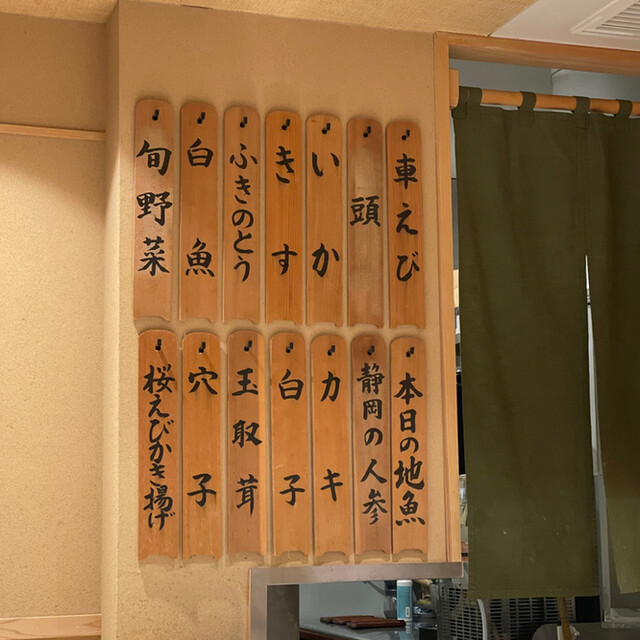 車えび
頭
いか
きす
ふきのとう
白魚
旬野菜
本日の地魚
静岡の人参
カキ
白子
玉取茸
穴子
桜えびかき揚げ